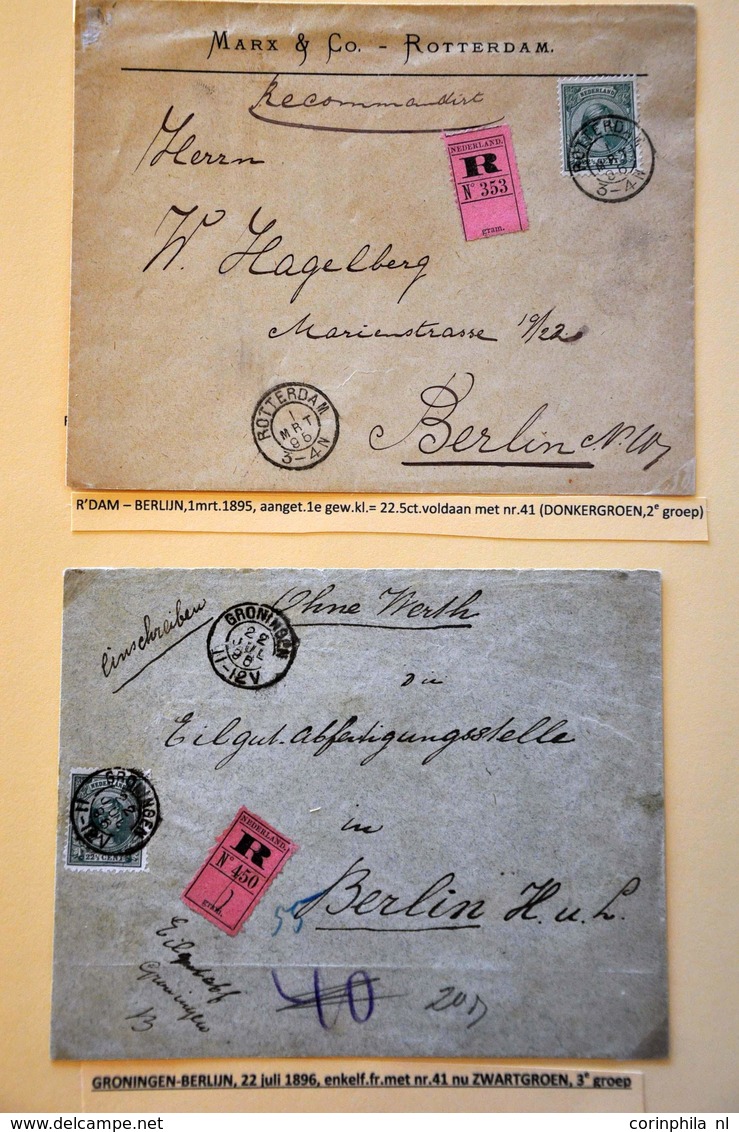 MARX & Co. - ROTTERDAM.
Recommandirt
NEDERLAND
ROTTERDAM
MRT
3-4N
NEDERLAND.
R
No 353
gram.
Herrn
W. Hagelberg
Marienstrasse 19/22
ROTTERDAM
1
MRT
95
3-4N
Berlin N.W.
R'DAM – BERLIJN,1mrt.1895, aanget.1e gew.kl.= 22.5ct.voldaan met nr.41 (DONKERGROEN,2e groep)
Einschreiben
Ohne Werth
GRONINGEN
22
JUL
96
11-12V
Die
Eilgut-Abfertigungsstelle
GRONINGEN
22
JUL
96
11-12V
NEDERLAND
22½ CENT
in
NEDERLAND.
R
No 450
gram.
55
Berlin H.u.L.
Groningen
B
40
GRONINGEN-BERLIJN, 22 juli 1896, enkelf.fr.met nr.41 nu ZWARTGROEN, 3e groep
corinphila nl